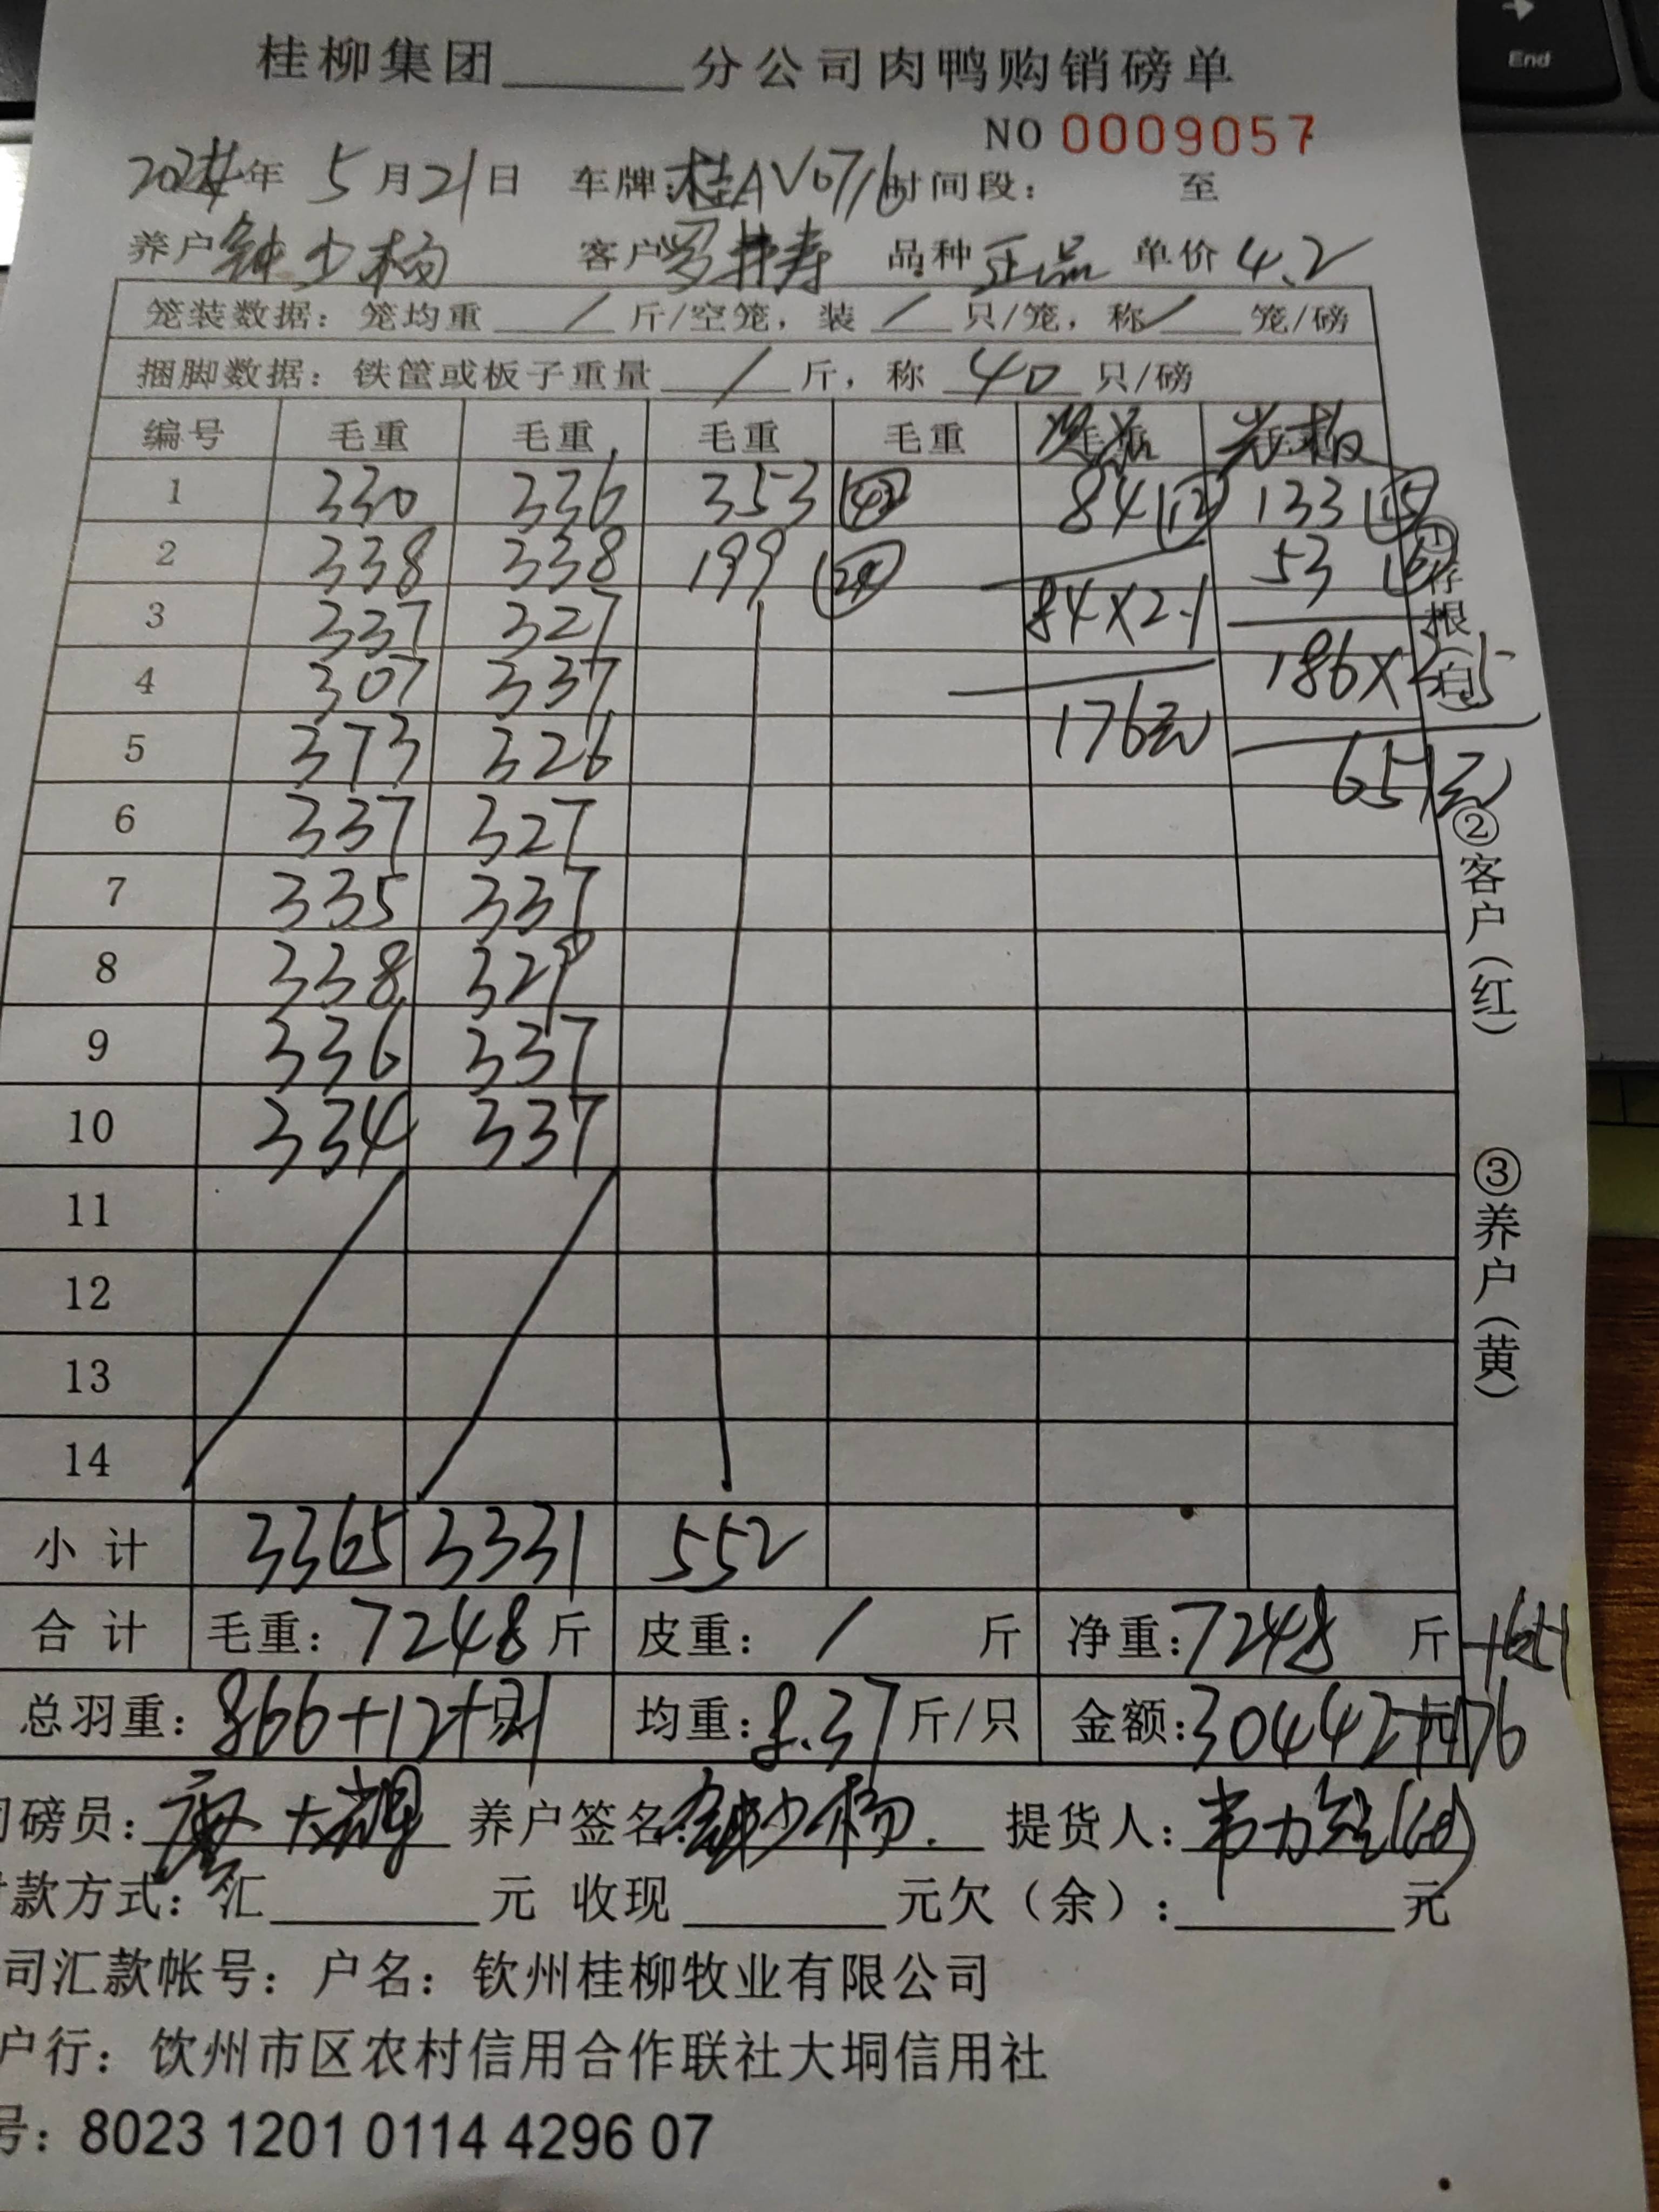 桂柳集团______分公司肉鸭购销磅单
NO 0009057
2024年 5月21日 车牌:桂AV0716 时间段: 至
养户 钟少杨 客户 罗 寿 品种 正品 单价 4.2
笼装数据: 笼均重 / 斤/空笼, 装 / 只/笼, 称 / 笼/磅
捆脚数据: 铁筐或板子重量 / 斤, 称 40 只/磅
编号 毛重 毛重 毛重 毛重 光板
1 330 336 353 (42) 84 (12) 133 (15)
2 338 338 199 (24) 53 (6)
3 337 327 84×2.1
4 307 337 186×3.5
5 373 326 176元 651元
6 337 327
7 335 337
8 338 329
9 336 337
10 334 337
11
12
13
14
小计 3365 3331 552
合计 毛重: 7248 斤 皮重: / 斤 净重: 7248 斤 +651
总羽重: 866+12+21 只 均重: 8.37 斤/只 金额: 30442 元 +176
司磅员: 廖大 养户签名: 钟少杨. 提货人: 韦力
付款方式: 汇______元 收现______元欠(余):______元
司汇款帐号: 户名: 钦州桂柳牧业有限公司
户行: 钦州市区农村信用合作联社大垌信用社
号: 8023 1201 0114 4296 07
①存根(白)
②客户(红)
③养户(黄)
End